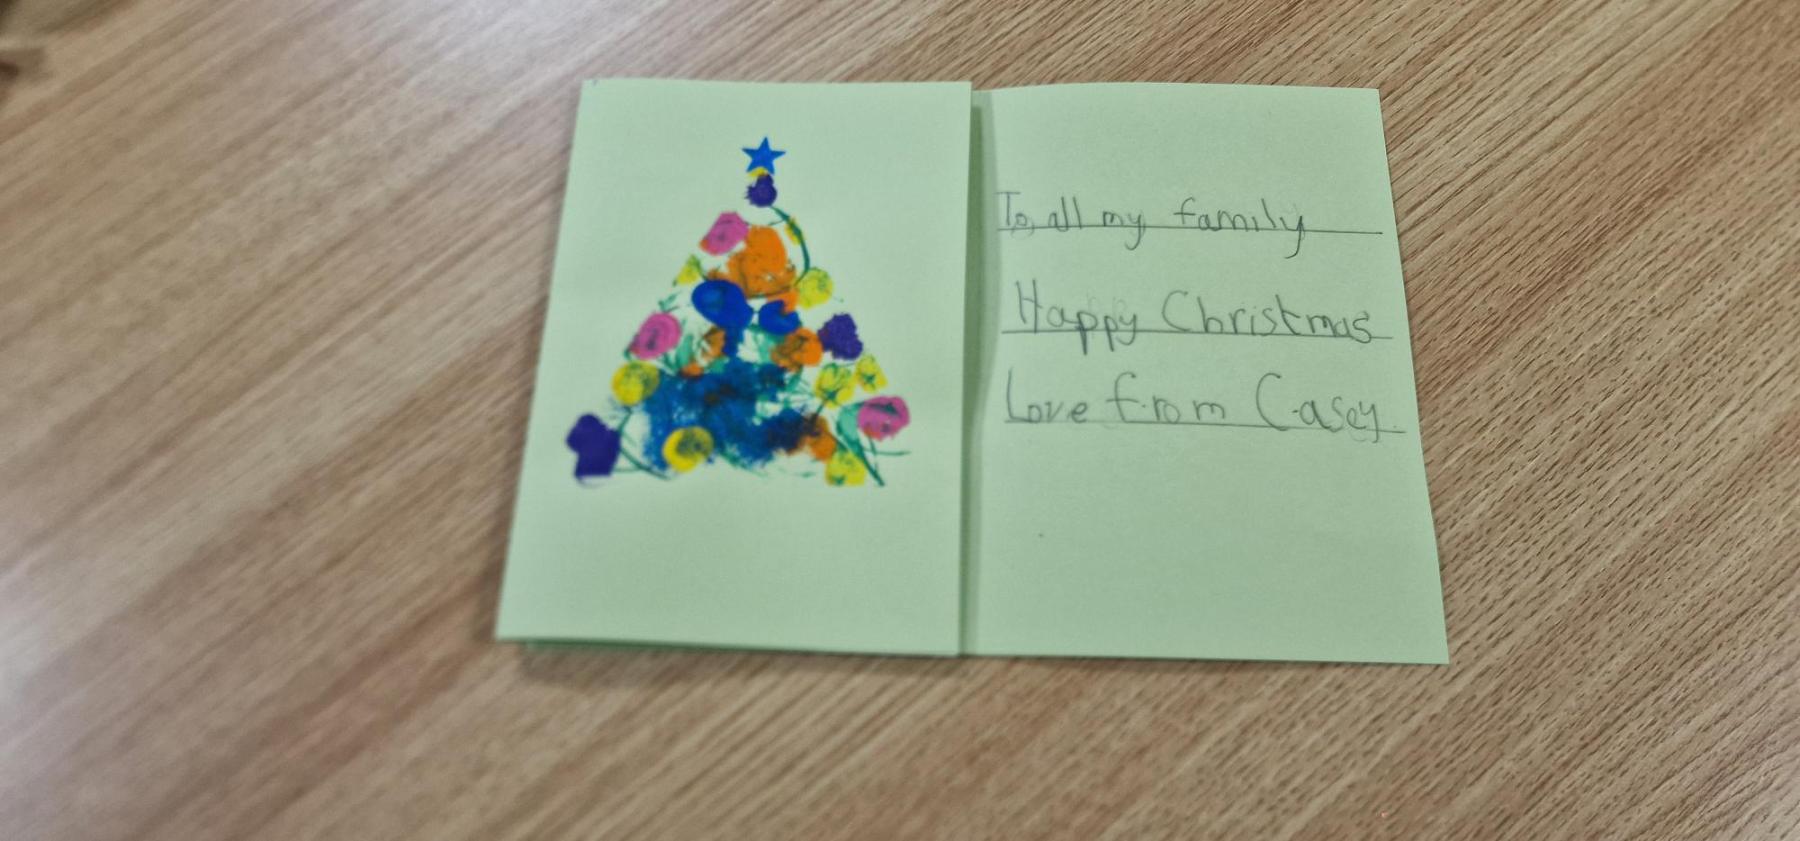 To all my family
Happy Christmas
Love from Casey.